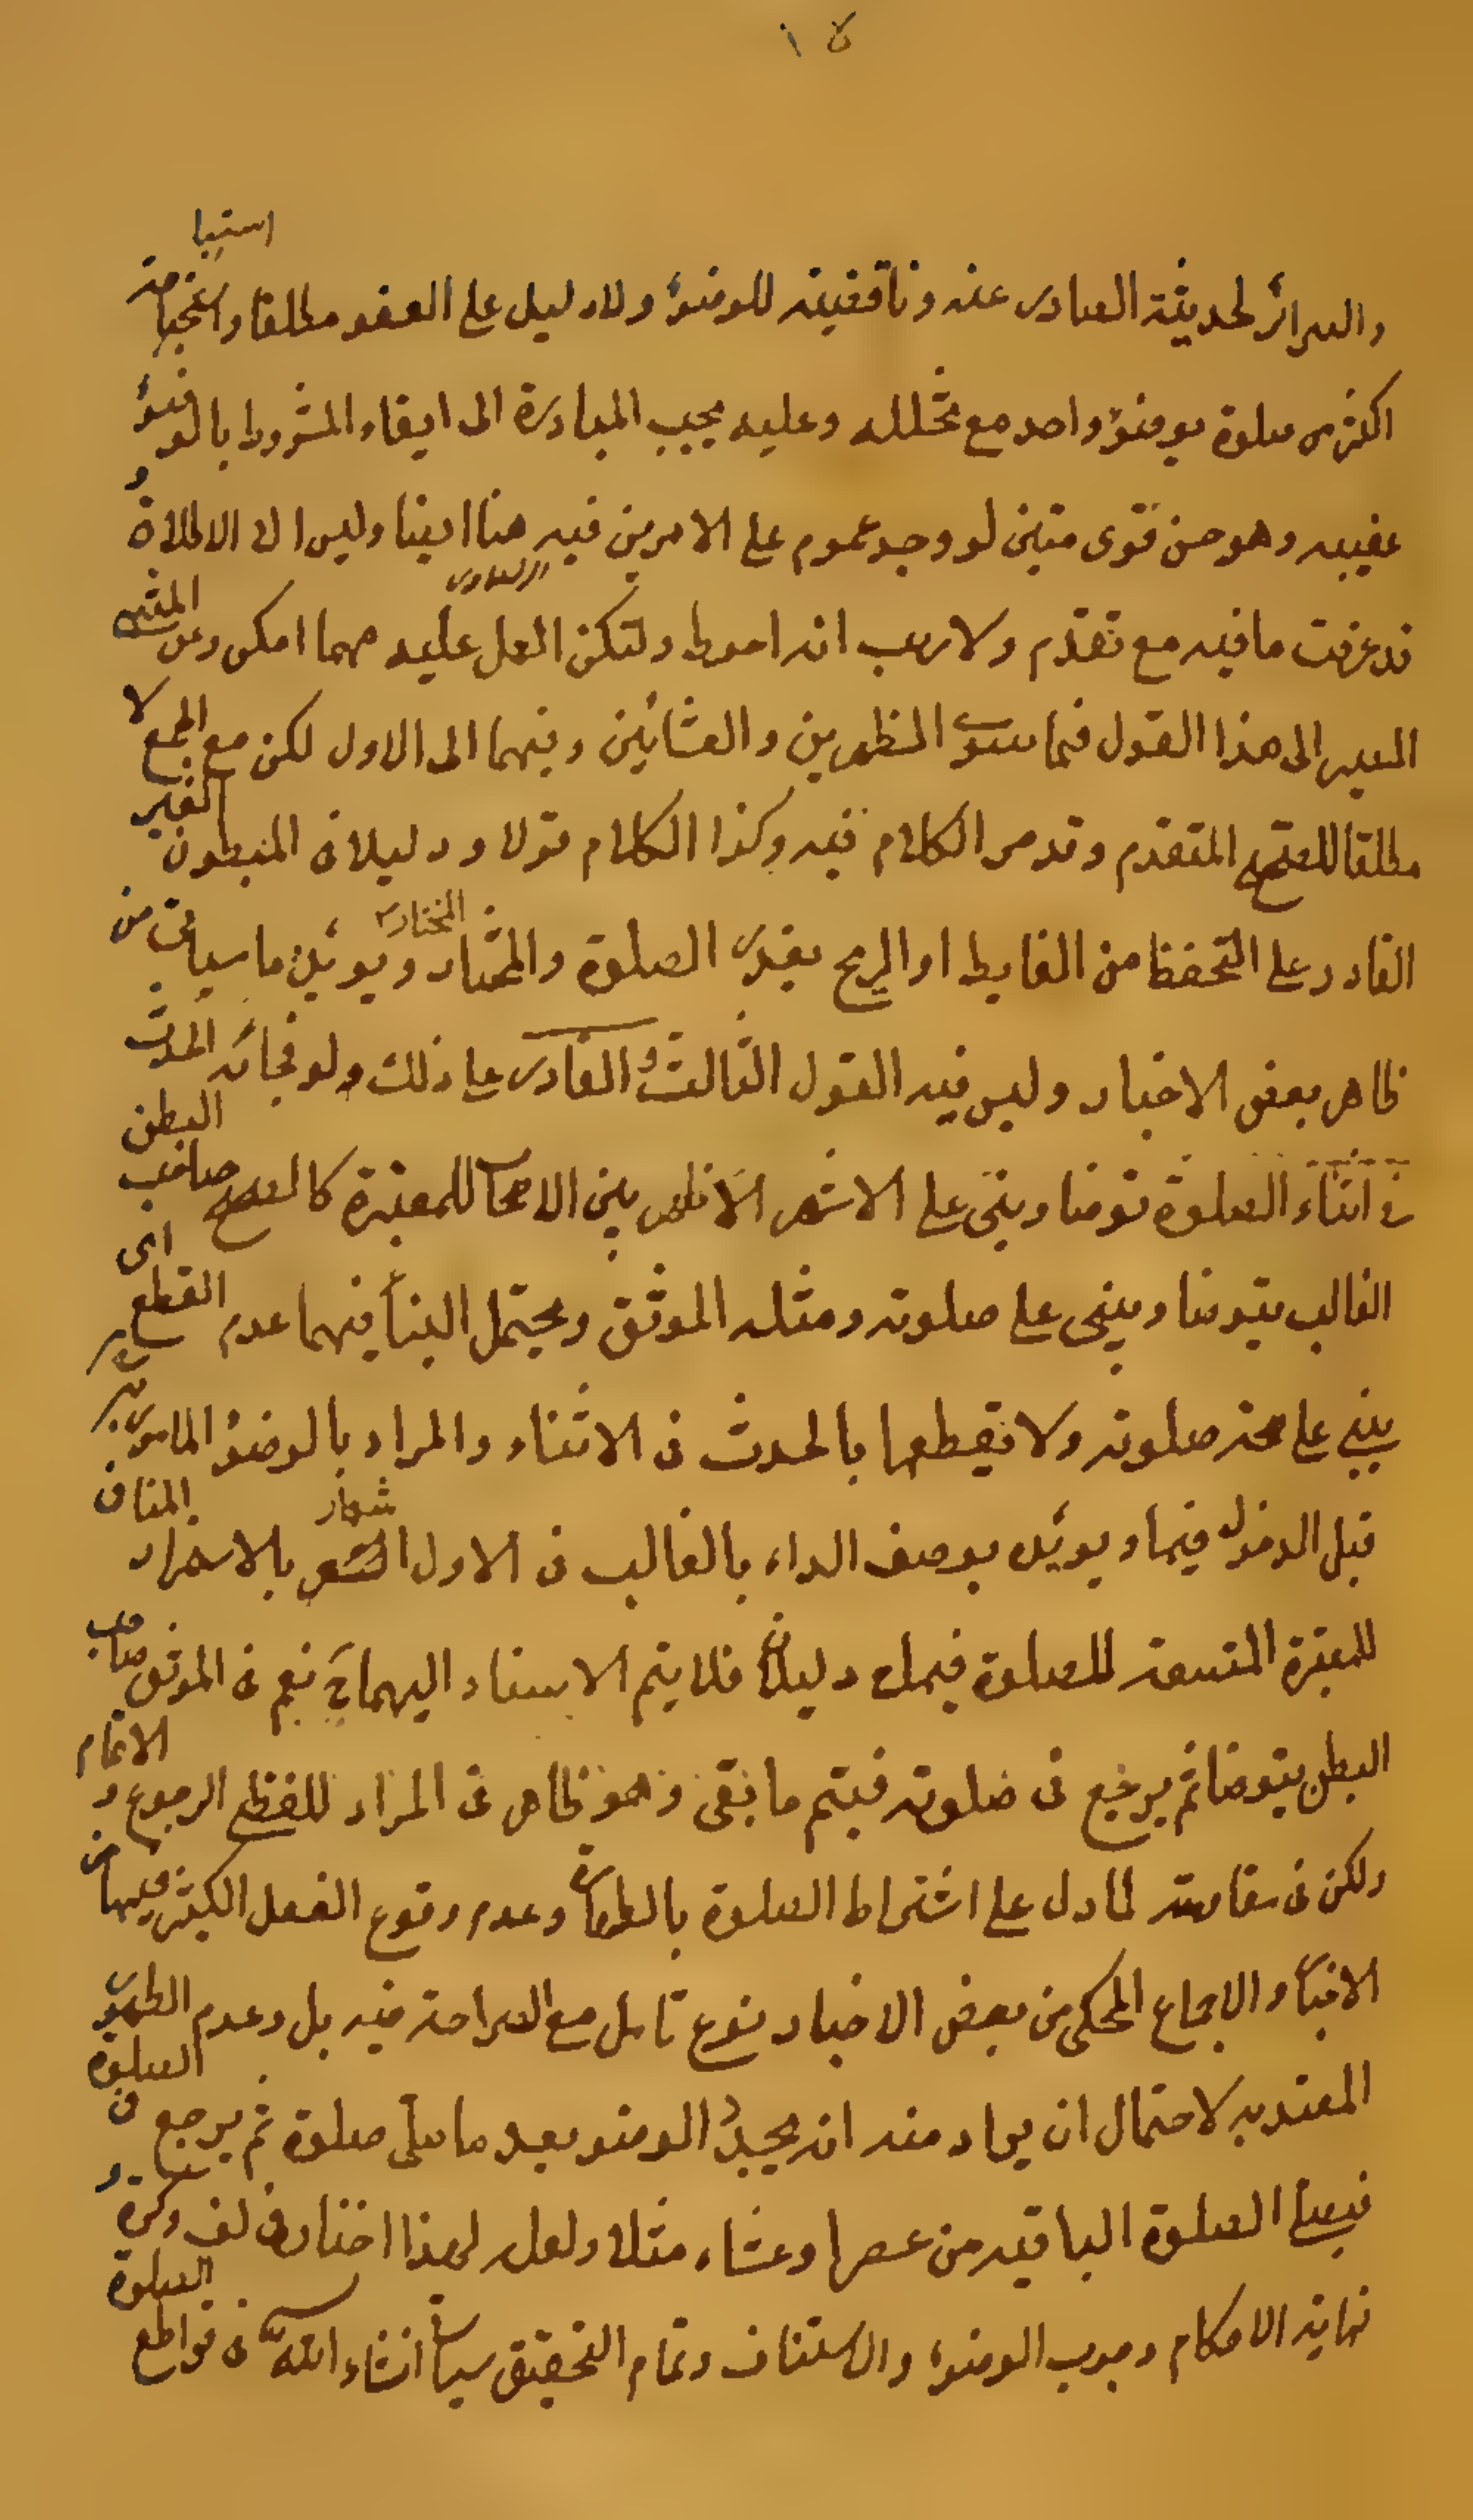 والسرائر لحدثية الصادر عنه وناقضيته للوضوء ولا دليل على العفو مطلقا واستباحة
اكثر من صلوة بوضوء واحد مع تخلله وعليه يجب المبادرة الى ايقاء المشروط بالوضوء
عقيبه وهو حسن قوى متين لو وجد عموم على الامرين فيه هنا ايضا وليس الا الاطلاق و
قد عرفت ما فيه مع تقدم ولا ريب انه احوط ولتكن العمل عليه مهما امكن وعن المنتهى
المصير الى هذا القول فيما سوى الظهرين والعشائين وفيهما الى الاول لكن مع الجمع لا
مطلقا للصحيح المتقدم وقد مر الكلام فيه وكذا الكلام قولا ودليلا في المبطون الغير
القادر على التحفظ من الغايط او الريح بقدر الصلوة والمختار المختار ويؤيده ما سياتى من
ظاهر بعض الاخبار وليس فيه القول الثالث والقادر على ذلك ولو فجأه الحدث
في اثناء الصلوة توضا وبنى على الاشهر الاظهر بين الاصحاب للمعتبرة كالصحيح صاحب البطن
الغالب يتوضا ويبنى على صلوته ومثله الموثق ويحتمل البناء فيهما عدم القطع اى
يبنى على صحة صلوته ولا يقطعها بالحدث في الاثناء والمراد بالوضوء المامور به
قبل الدخول فيها ويؤيده بوصف الداء بالغالب في الاول الشعار بالاستمرار المنافي
للمعتبرة المتسعة للصلوة فيما دليلا فلا يتم الاستناد اليهما ح نعم في الموثق صاحب
البطن يتوضا ثم يرجع في صلوته فيتم ما بقى وهو ظاهر في المراد للفظ الرجوع والاتمام
ولكن في مقاومته لما دل على اشتراط الصلوة بالطهارة وعدم وقوع الفعل الكثير فيها من
الاخبار والاجماع المحكى من بعض الاخبار نوع تامل مع الصراحة فيه بل وعدم الظهور
المعتد به لاحتمال ان يراد منه انه يجدد الوضوء بعد ما صلى صلوة ثم يرجع في الصلوة
فيصلى الصلوة الباقيه من عصر او عشاء مثلا ولعل لهذا اختار في لف وكرة و
نهاية الاحكام وجوب الوضوء والاستئناف وتمام التحقيق سياتى انشاء الله في قواطع الصلوة